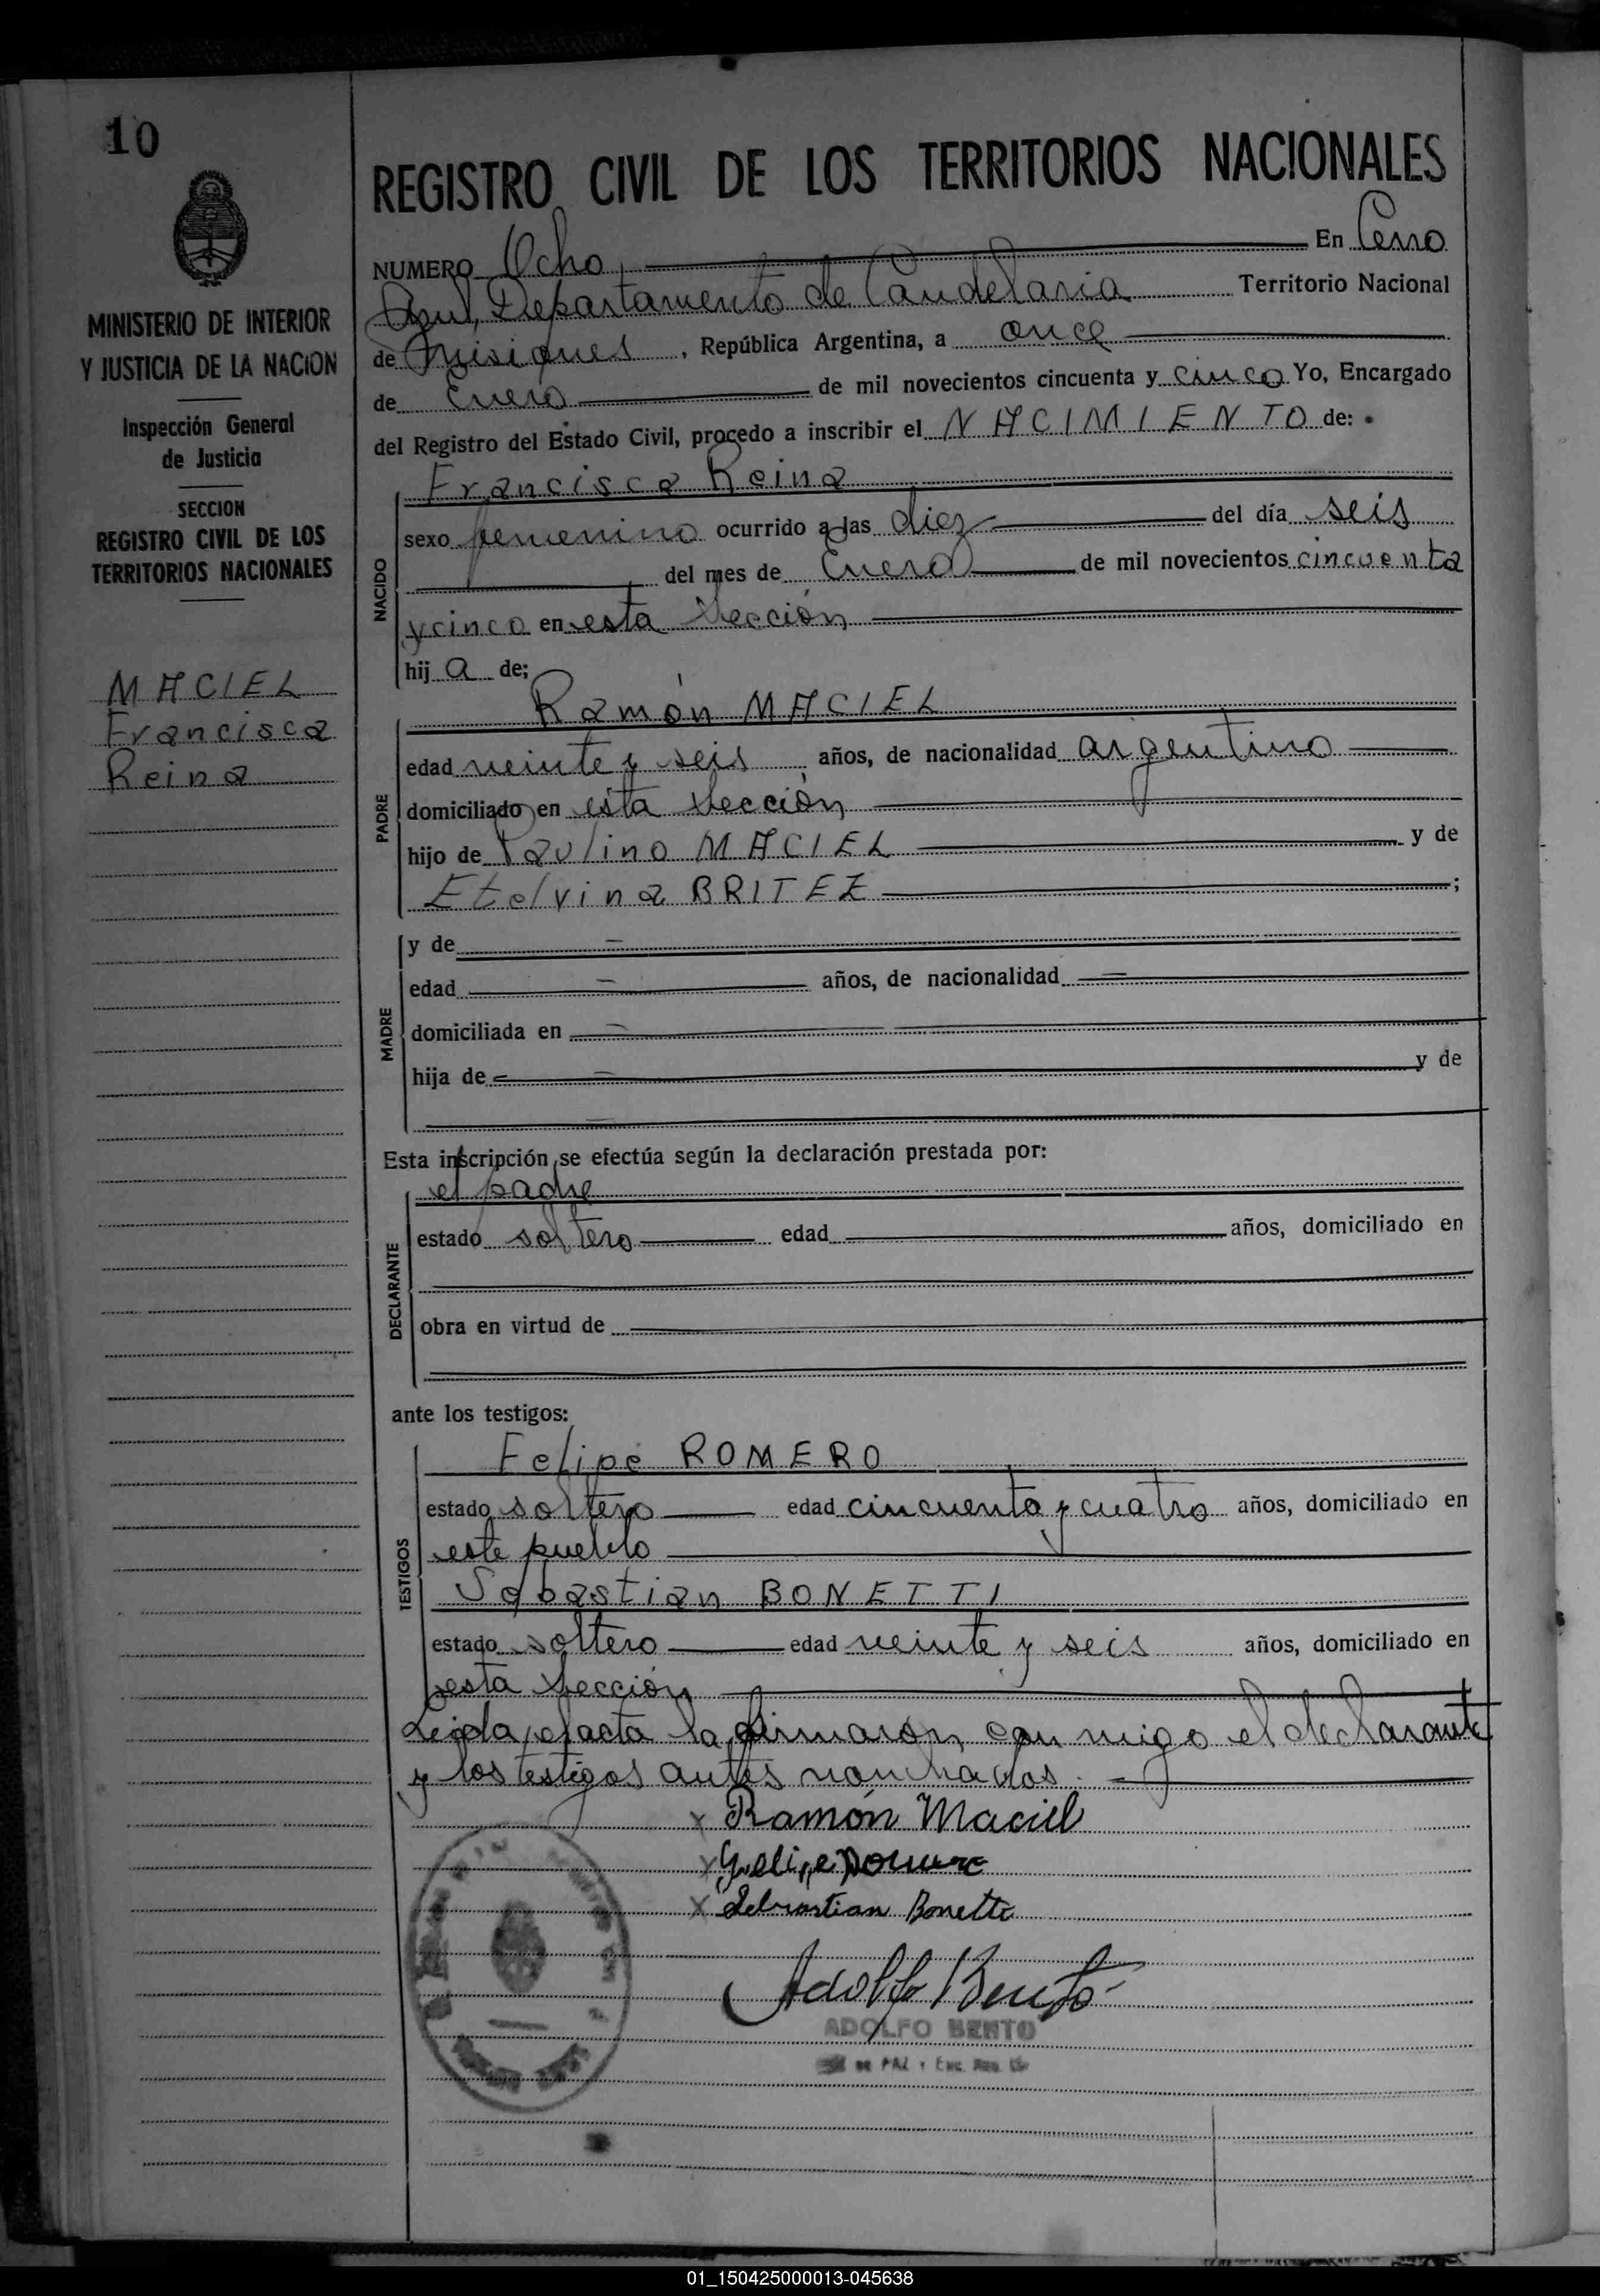 10
MINISTERIO DE INTERIOR
Y JUSTICIA DE LA NACION
Inspección General
de Justicia
SECCION
REGISTRO CIVIL DE LOS
TERRITORIOS NACIONALES
MACIEL
Francisca
Reina
REGISTRO CIVIL DE LOS TERRITORIOS NACIONALES
NUMERO Ocho En Cerro
Azul, Departamento de Candelaria Territorio Nacional
de Misiones, República Argentina, a once
de Enero de mil novecientos cincuenta y cinco Yo, Encargado
del Registro del Estado Civil, procedo a inscribir el NACIMIENTO de:
NACIDO
Francisca Reina
sexo femenino ocurrido a las diez del día seis
del mes de Enero de mil novecientos cincuenta
y cinco en esta Sección
hij a de;
PADRE
Ramón MACIEL
edad veinte y seis años, de nacionalidad argentino
domiciliado en esta Sección
hijo de Paulino MACIEL y de
Etelvina BRITEZ ;
MADRE
y de
edad años, de nacionalidad
domiciliada en
hija de y de
Esta inscripción se efectúa según la declaración prestada por:
DECLARANTE
el padre
estado soltero edad años, domiciliado en
obra en virtud de
ante los testigos:
TESTIGOS
Felipe ROMERO
estado soltero edad cincuenta y cuatro años, domiciliado en
este pueblo
Sebastian BONETTI
estado soltero edad veinte y seis años, domiciliado en
esta Sección
Leida el acta la firmaron con migo el declarante
y los testigos antes nombrados.
x Ramón Maciel
x Felipe Romero
x Sebastian Bonetti
Adolfo Bento
ADOLFO BENTO
DE PAZ y Enc. Reg.
01_150425000013-045638